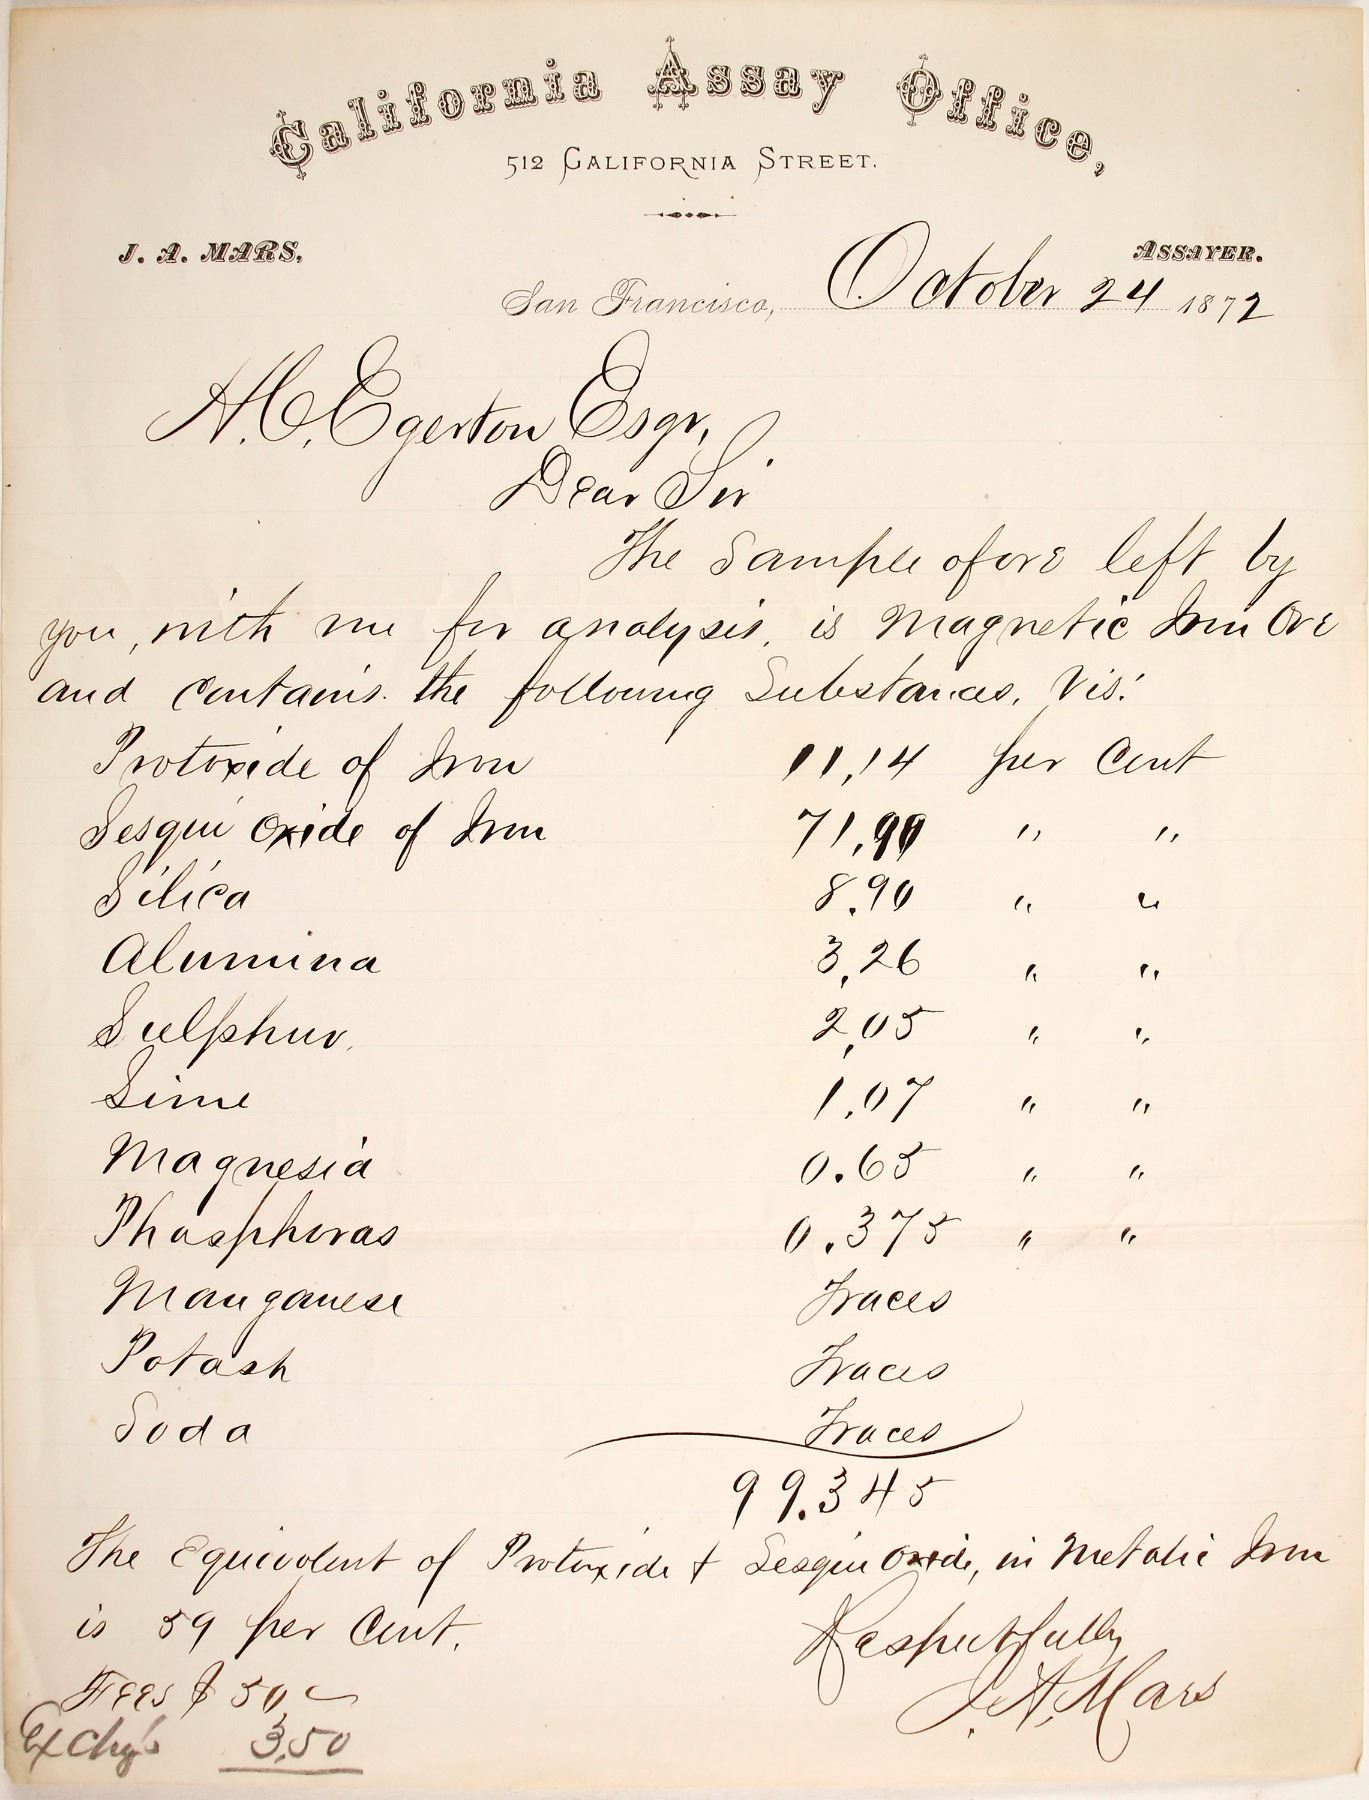 California Assay Office,
512 California Street.
J. A. MARS, ASSAYER.
San Francisco, October 24 1872
H. C. Egerton Esqr,
Dear Sir
The Sample of ore left by
you, with me for analysis, is Magnetic Iron Ore
and contains the following Substances, Vis:
Protoxide of Iron 11,14 per Cent
Sesqui Oxide of Iron 71,90 " "
Silica 8.90 " "
Alumina 3,26 " "
Sulphur 2,05 " "
Lime 1.07 " "
Magnesia 0.65 " "
Phosphoras 0.375 " "
Manganese Traces
Potash Traces
Soda Traces
99.345
The Equivolent of Protoxide & Sesqui Oxide, in Metalic Iron
is 59 per Cent.
Respectfully
Fees $ 50,
J. A. Mars
3,50